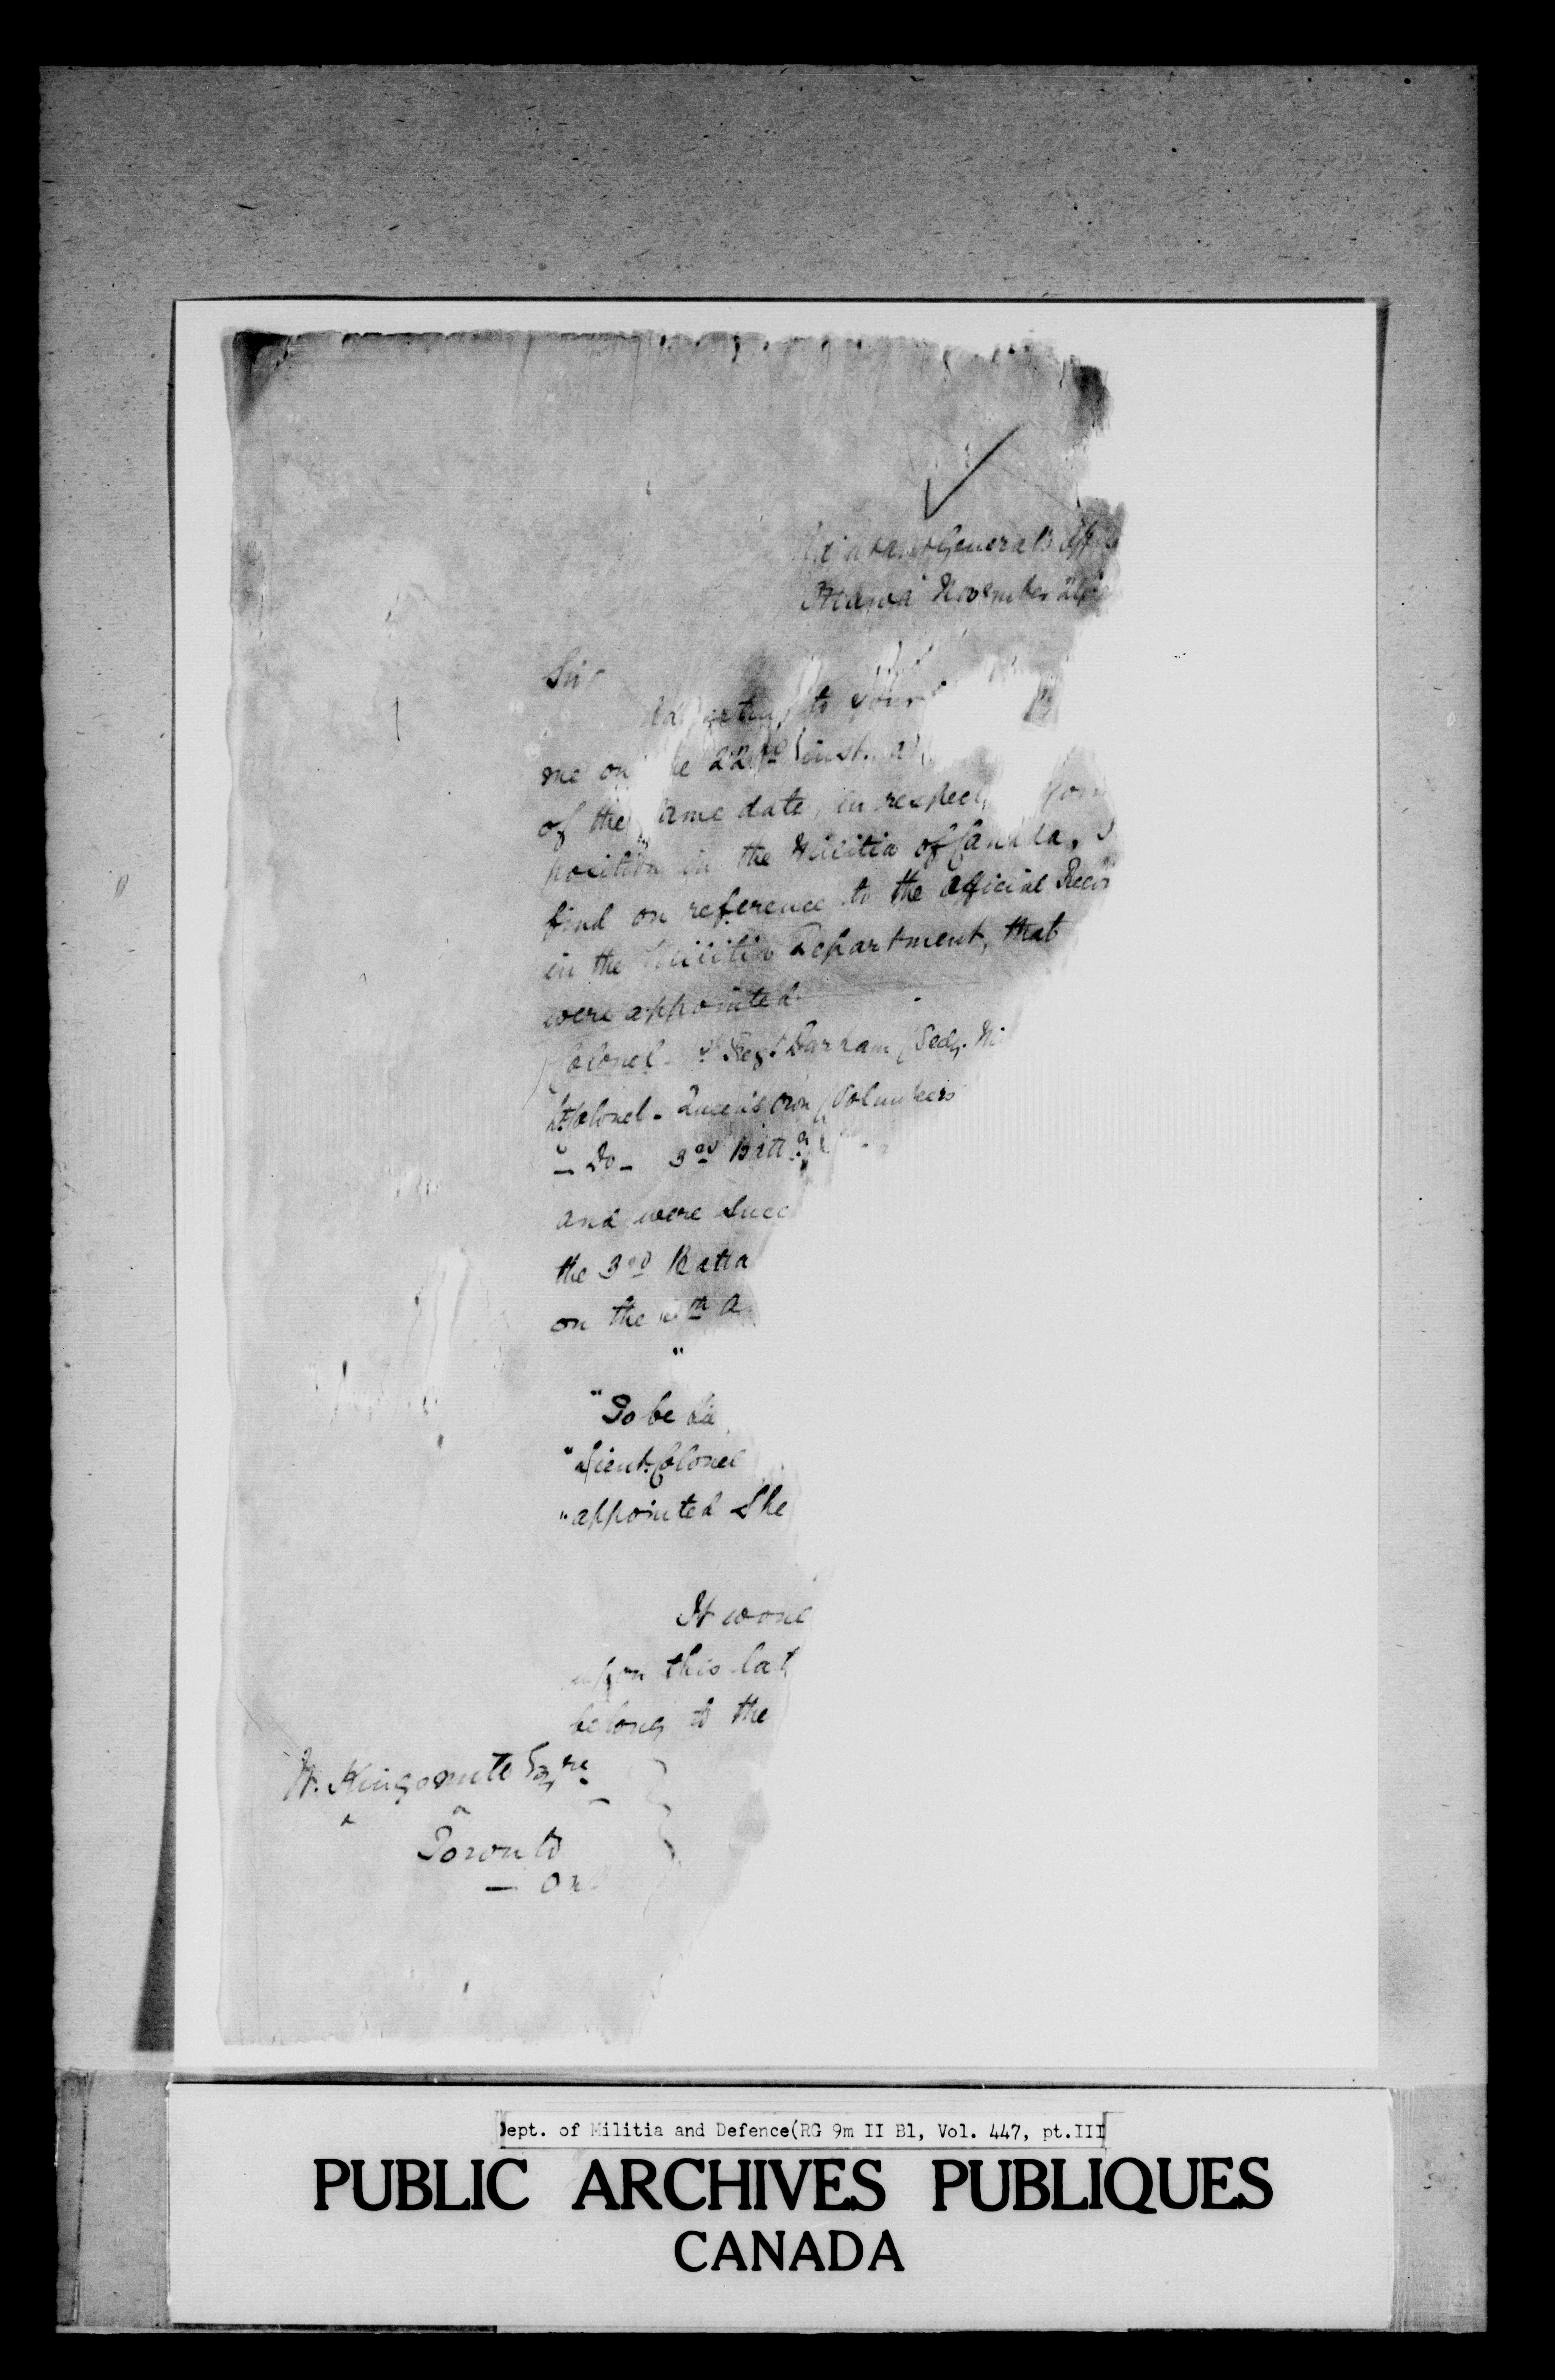 Adjutant General's Office
Ottawa November
Sir
Adverting to your
me on the 22nd inst.
of the same date, in respect your
position in the Militia of Canada, I
find on reference to the Official Reco
in the Militia Department, that
were appointed
Colonel - Regt Durham (Sedy. Mi
Lt Colonel - Queen's Own (Volunteers
" Do - 3rd Battn
and were succ
the 3rd Batta
on the th A
"
"To be
"Lieut. Colonel
"appointed She
It woul
upon this lat
belong to the
W. Kingsmill Esqre
Toronto
— Ont
Dept. of Militia and Defence(RG 9m II B1, Vol. 447, pt.III
PUBLIC ARCHIVES PUBLIQUES
CANADA